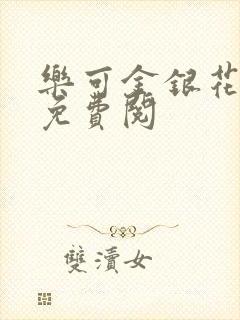 樂可金銀花
免費閱
雙瀆女